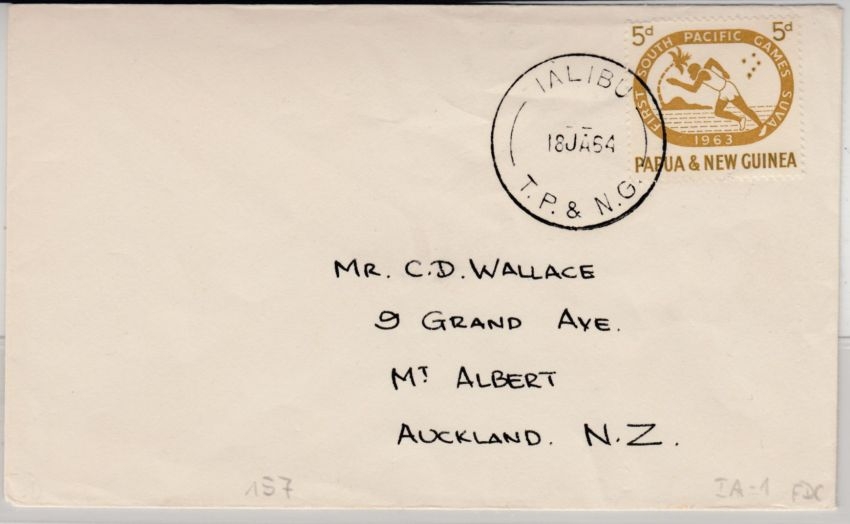 5d 5d
FIRST SOUTH PACIFIC GAMES SUVA
1963
PAPUA & NEW GUINEA
IALIBU
18JA64
T.P. & N.G.
MR. C.D. WALLACE
9 GRAND AVE.
MT ALBERT
AUCKLAND. N.Z.
157
IA-1 FDC